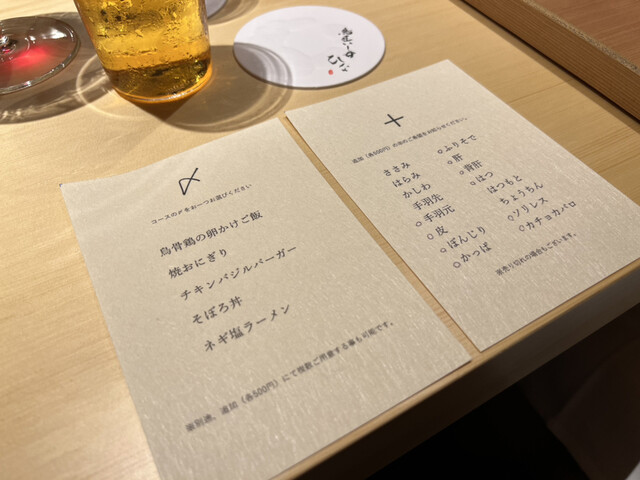 〆
コースの〆をお一つお選びください
烏骨鶏の卵かけご飯
焼おにぎり
チキンバジルバーガー
そぼろ丼
ネギ塩ラーメン
単別途、追加(各500円)にて複数ご用意する事も可能です。
+
ささみ
はらみ
かしわ
手羽先
○手羽元
○皮
○ぼんじり
○かっぱ
○ふりそで
○肝
○背肝
○はつ
はつもと
ちょうちん
○ソリレス
○カチョカバロ
※売り切れの場合もございます。